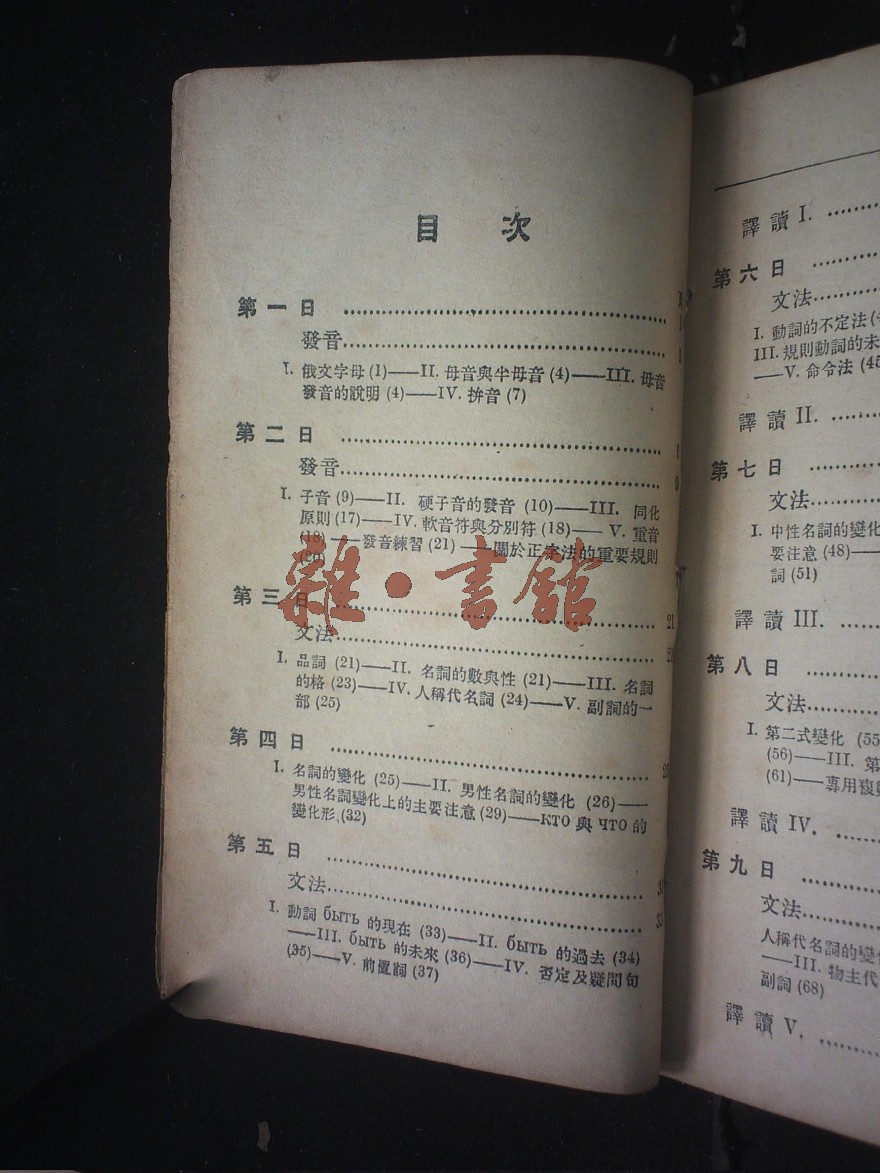 目 次
第一日 ……
發音……
I. 俄文字母 (1)——II. 母音與半母音 (4)——III. 母音
發音的說明 (4)——IV. 拚音 (7)
第二日 ……
發音……
I. 子音 (9)——II. 硬子音的發音 (10)——III. 同化
原則 (17)——IV. 軟音符與分別符 (18)——V. 重音
(18)——發音練習 (21)——關於正字法的重要規則
雜·書館
第三日 …… 21
文法……
I. 品詞 (21)——II. 名詞的數與性 (21)——III. 名詞
的格 (23)——IV. 人稱代名詞 (24)——V. 副詞的一
部 (25)
第四日 ……
I. 名詞的變化 (25)——II. 男性名詞的變化 (26)——
男性名詞變化上的主要注意 (29)——КТО 與 ЧТО 的
變化形 (32)
第五日 ……
文法…… 33
I. 動詞 быть 的現在 (33)——II. быть 的過去 (34)
——III. быть 的未來 (36)——IV. 否定及疑問句
(35)——V. 前置詞 (37)
譯讀 I. ……
第六日 ……
文法……
I. 動詞的不定法
III. 規則動詞的未
——V. 命令法 (45
譯讀 II. ……
第七日 ……
文法……
I. 中性名詞的變化
要注意 (48)——
詞 (51)
譯讀 III. ……
第八日 ……
文法……
I. 第二式變化 (55
(56)——III. 第
(61)——專用複數
譯讀 IV. ……
第九日 ……
文法……
人稱代名詞的變化
——III. 物主代
副詞 (68)
譯讀 V. ……